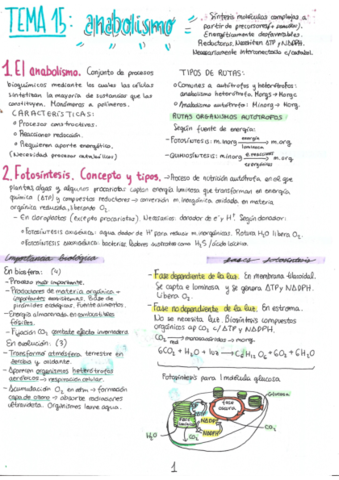 TEMA 15: anabolismo
Síntesis moléculas complejas a
partir de precursores
Energéticamente desfavorables.
Reductoras. Necesitan ATP y NADPH.
Necesariamente interconectado c/catabol.
1. El anabolismo. Conjunto de procesos
bioquímicos mediante los cuales las células
sintetizan la mayoría de sustancias que las
constituyen. Monómeros a polímeros.
CARACTERÍSTICAS:
Procesos constructivos.
Reacciones reducción.
Requieren aporte energético.
(Necesidad procesos catabólicos)
TIPOS DE RUTAS:
Comunes a autótrofas y heterótrofas:
anabolismo heterótrofo. M.org → M.org
Anabolismo autótrofo: M.inorg → M.org.
RUTAS ORGANISMOS AUTÓTROFOS
Según fuente de energía:
- FOTOSÍNTESIS: m.inorg energía luminosa → m.org
- QUIMIOSÍNTESIS: m.inorg e. reacciones exergónicas → m.org.
2. Fotosíntesis. Concepto y tipos.
Proceso de nutrición autótrofa en el que
plantas, algas y algunos procariotas captan energía luminosa que transforman en energía
química (ATP) y compuestos reductores → conversión m.inorgánica oxidada en materia
orgánica reducida, liberando O2.
- En cloroplastos (excepto procariotas). Necesarios: donador de e- y H+. Según donador:
Fotosíntesis oxigénica: agua dador de H+ para reducir m. inorgánicas. Rotura H2O libera O2.
Fotosíntesis anoxigénica: bacterias. Poderes reductores como H2S / ácido láctico.
Importancia biológica
En biosfera: (4)
- Proceso más importante.
- Productores de materia orgánica →
importantes ecosistemas. Base de
pirámides ecológicas. Fuente alimentos.
- Energía almacenada en combustibles
fósiles.
- Fijación CO2 combate efecto invernadero.
En evolución: (3)
- Transformó atmósfera terrestre en
aerobia y oxidante.
- Aparecen organismos heterótrofos
aeróbicos → respiración celular.
- Acumulación O2 en atm → formación
capa de ozono → absorbe radiaciones
ultravioleta. Organismos fuera agua.
- Fase dependiente de la luz. En membrana tilacoidal.
Se capta e luminosa y se genera ATP y NADPH.
Libera O2.
- Fase no dependiente de la luz. En estroma.
No se necesita luz. Biosíntesis compuestos
orgánicos ap CO2 c/ATP y NADPH.
6CO2 + H2O + luz → C6H12O6 + 6O2 + 6H2O
Fotosíntesis para 1 molécula glucosa.
Glucosa
H2O
CO2
NADPH
CO2
1